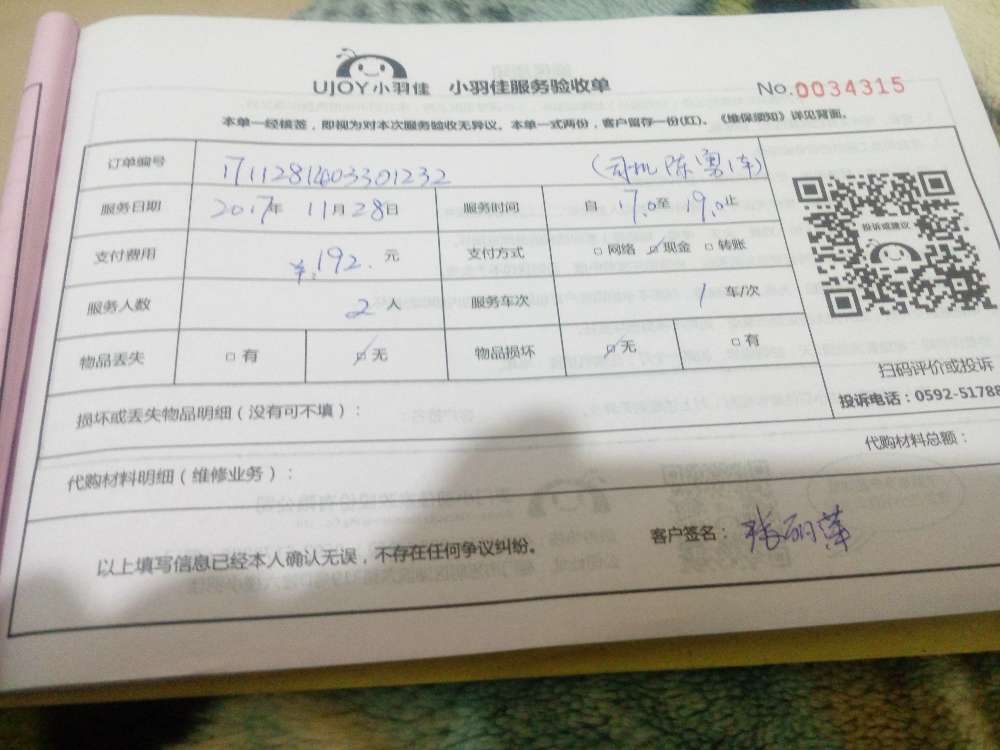 UJOY小羽佳 小羽佳服务验收单 No.0034315
本单一经核签，即视为对本次服务验收无异议。本单一式两份，客户留存一份(红)。《维保须知》详见背面。
订单编号 1711281403301232 (司机陈勇1车)
服务日期 2017年 11月28日 服务时间 自 17.0至 19.0止
支付费用 ￥:192. 元 支付方式 □网络 ☑现金 □转账
服务人数 2人 服务车次 1 车/次
物品丢失 □有 ☑无 物品损坏 ☑无 □有
投诉或建议
扫码评价或投诉
投诉电话：0592-51788
损坏或丢失物品明细（没有可不填）：
代购材料明细（维修业务）： 代购材料总额：
以上填写信息已经本人确认无误，不存在任何争议纠纷。 客户签名： 张丽萍